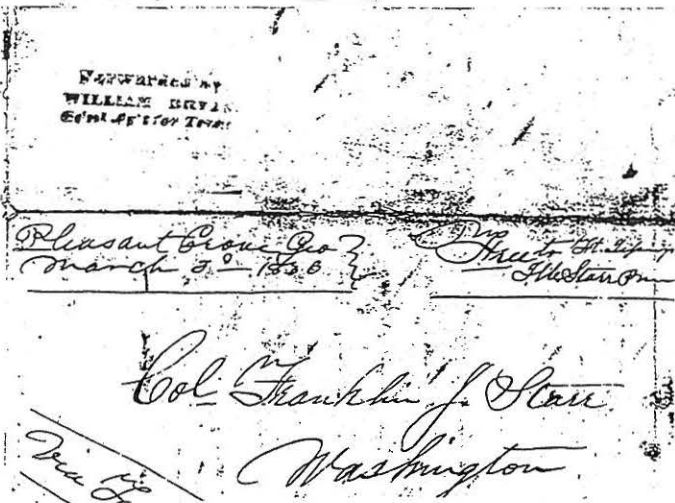 Forwarded by
WILLIAM BRYAN
Gen'l Ag't for Texas
Pleasant Grove Geo
March 3d
Free
Col. Franklin J. Starr
Washington
Via